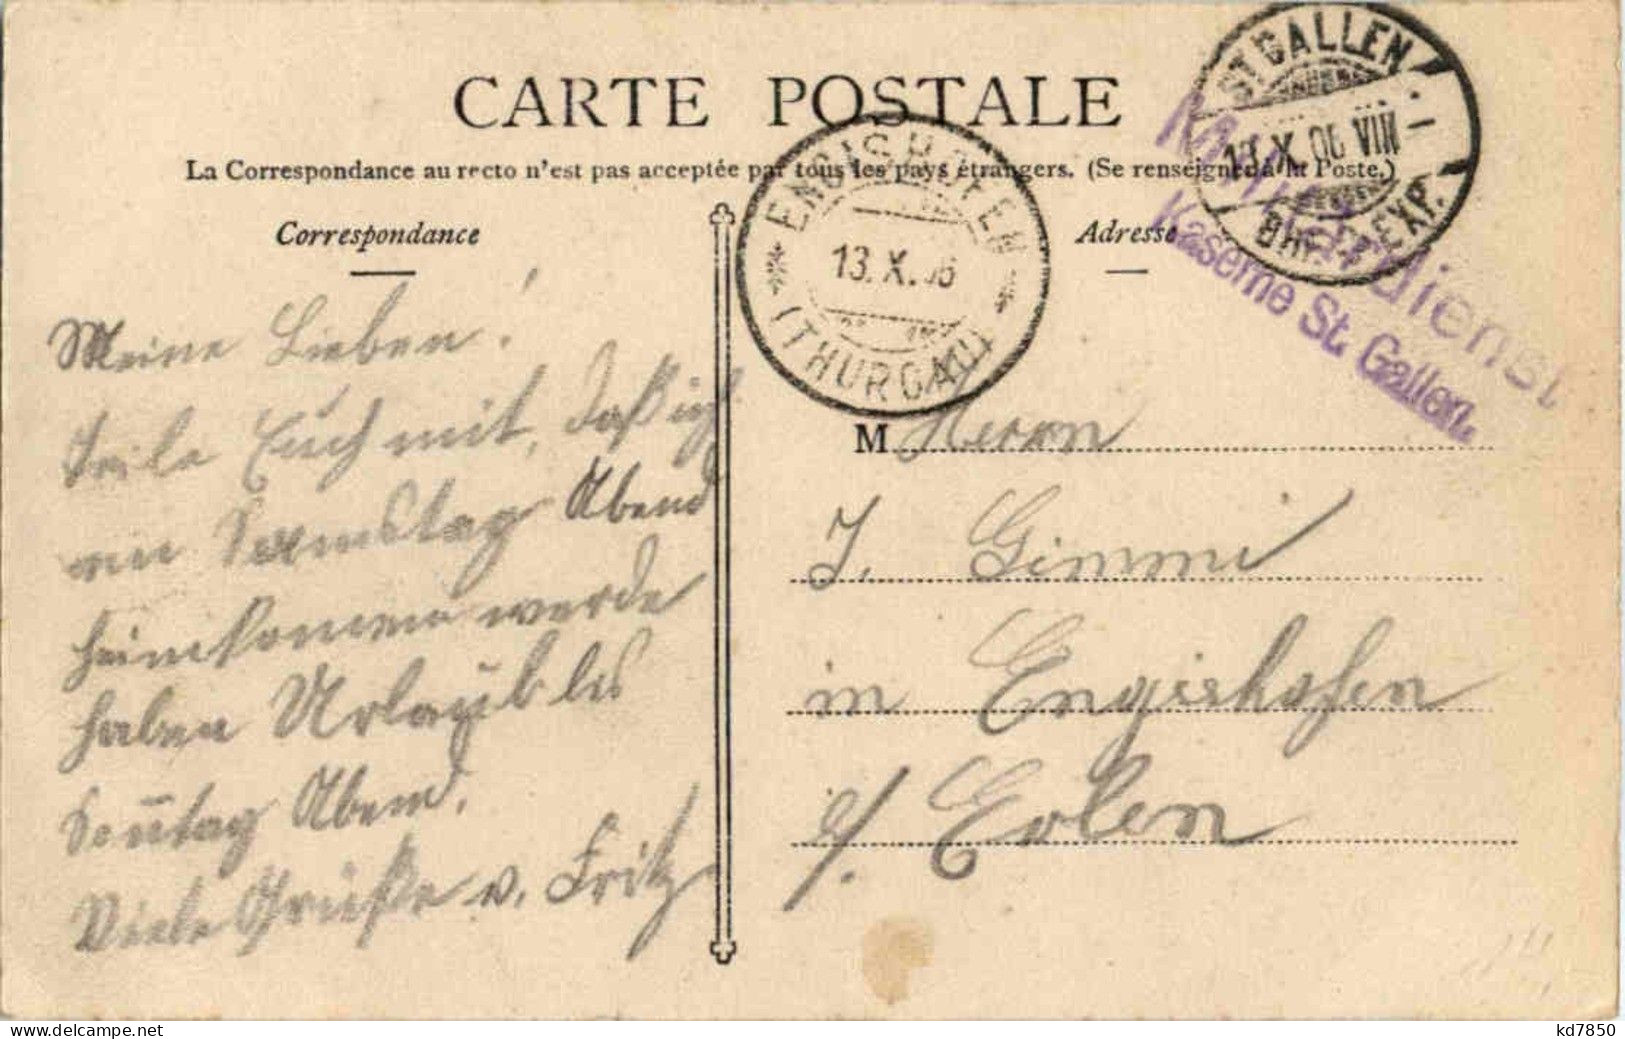 CARTE POSTALE
La Correspondance au recto n'est pas acceptée par tous les pays étrangers. (Se renseigner à la Poste.)
Correspondance
Adresse
ST. GALLEN
13.X.06 VIII
BRF. EXP.
ENGISHOFEN
13.X.06
(THURGAU)
Militärdienst
Kaserne St. Gallen.
Meine Lieben!
Teile Euch mit, daß ich
am Samstag Abend
heimkommen werde
haben Urlaub bis
Sonntag Abend.
Viele Grüße v. Fritz
M Herrn
J. Gimmi
in Engishofen
b/. Erlen
kd7850